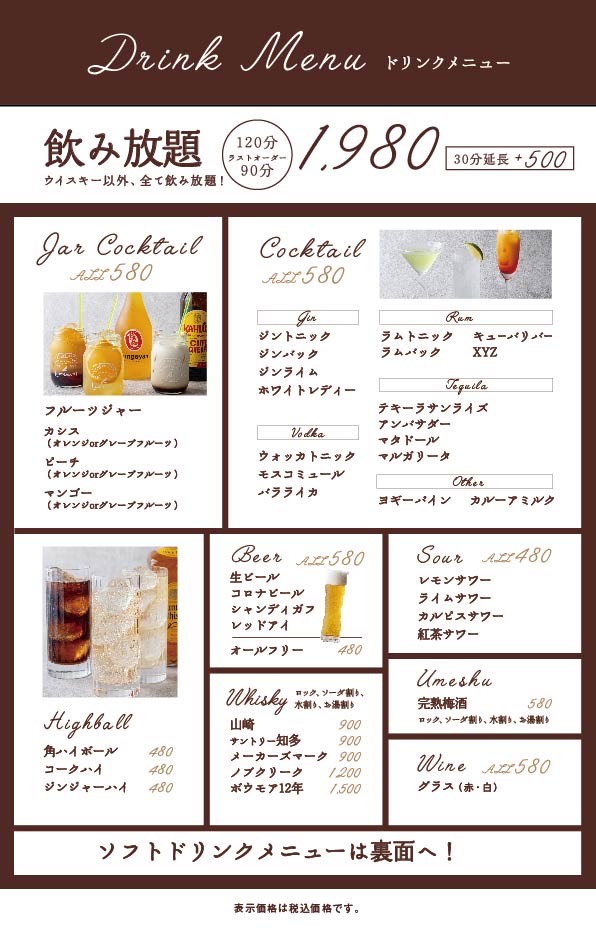 Drink Menu ドリンクメニュー
飲み放題
ウイスキー以外、全て飲み放題！
120分
ラストオーダー
90分
1.980
30分延長 +500
Jar Cocktail
ALL 580
フルーツジャー
カシス
（オレンジorグレープフルーツ）
ピーチ
（オレンジorグレープフルーツ）
マンゴー
（オレンジorグレープフルーツ）
Cocktail
ALL 580
Gin
ジントニック
ジンバック
ジンライム
ホワイトレディー
Vodka
ウォッカトニック
モスコミュール
バラライカ
Rum
ラムトニック キューバリバー
ラムバック XYZ
Tequila
テキーラサンライズ
アンバサダー
マタドール
マルガリータ
Other
ヨギーパイン カルーアミルク
Highball
角ハイボール 480
コークハイ 480
ジンジャーハイ 480
Beer ALL 580
生ビール
コロナビール
シャンディガフ
レッドアイ
オールフリー 480
Whisky ロック、ソーダ割り、
水割り、お湯割り
山崎 900
サントリー知多 900
メーカーズマーク 900
ノブクリーク 1.200
ボウモア12年 1.500
Sour ALL 480
レモンサワー
ライムサワー
カルピスサワー
紅茶サワー
Umeshu
完熟梅酒 580
ロック、ソーダ割り、水割り、お湯割り
Wine ALL 580
グラス（赤・白）
ソフトドリンクメニューは裏面へ！
表示価格は税込価格です。